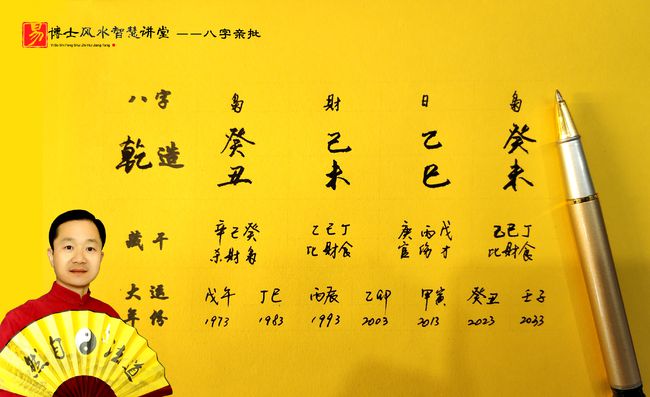 易 博士风水智慧讲堂 ——八字亲批
八字 枭 財 日 枭
乾造 癸 己 乙 癸
丑 未 巳 未
藏干 辛己癸 乙己丁 庚丙戊 乙己丁
杀財枭 比財食 官伤才 比財食
大运 戊午 丁巳 丙辰 乙卯 甲寅 癸丑 壬子
年份 1973 1983 1993 2003 2013 2023 2033
然自法道